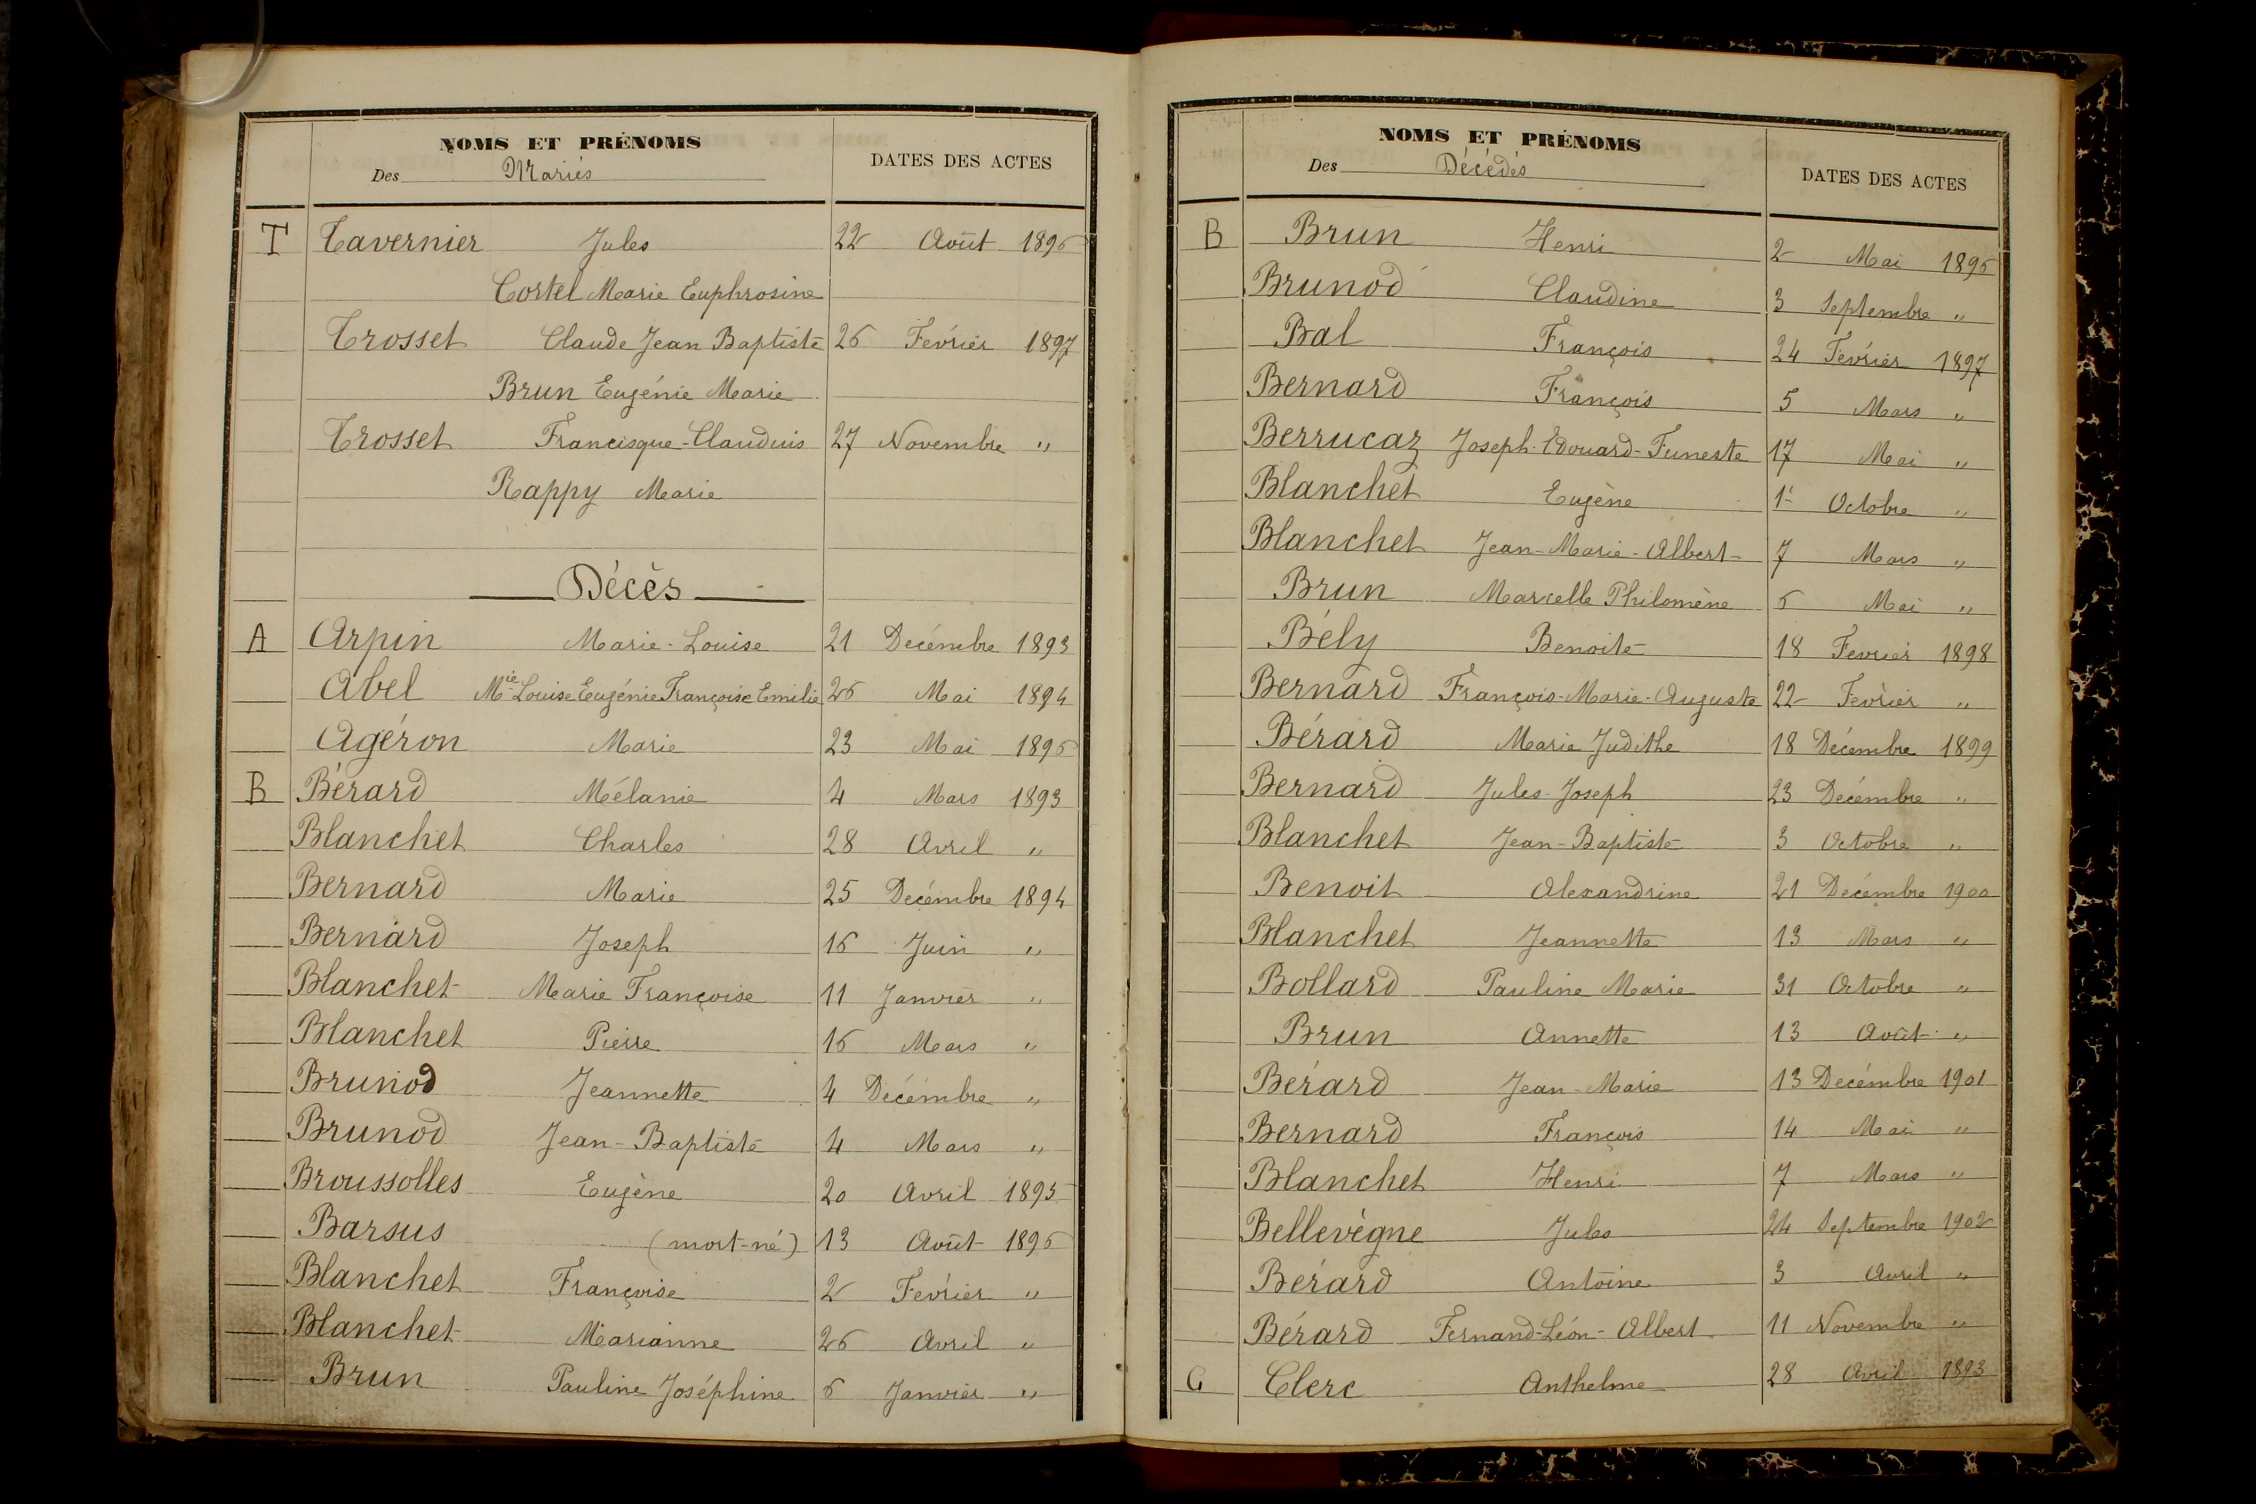 NOMS ET PRÉNOMS
Des Mariés
DATES DES ACTES
T Tavernier Jules 22 Août 1896
Cortel Marie Euphrosine
Trosset Claude Jean Baptiste 26 Février 1897
Brun Eugénie Marie
Trosset Francisque-Claudius 27 Novembre "
Rappy Marie
Décès
A Arpin Marie-Louise 21 Decémbre 1893
Abel Mie Louise Eugénie Françoise Emilie 26 Mai 1894
Agéron Marie 23 Mai 1896
B Bérard Mélanie 4 Mars 1893
Blanchet Charles 28 Avril "
Bernard Marie 25 Decémbre 1894
Bernard Joseph 16 Juin "
Blanchet Marie Françoise 11 Janvier "
Blanchet Pierre 16 Mars "
Brunod Jeannette 4 Décémbre "
Brunod Jean-Baptiste 4 Mars "
Broussolles Eugène 20 Avril 1895
Barsus (mort-né) 13 Août 1896
Blanchet Françoise 2 Février "
Blanchet Marianne 26 Avril "
Brun Pauline Joséphine 6 Janvier "
NOMS ET PRÉNOMS
Des Décédés
DATES DES ACTES
B Brun Henri 2 Mai 1896
Brunod Claudine 3 Septembre "
Bal François 24 Février 1897
Bernard François 5 Mars "
Berrucaz Joseph-Edouard-Funeste 17 Mai "
Blanchet Eugène 1r Octobre "
Blanchet Jean-Marie-Albert 7 Mars "
Brun Marcelle Philomène 6 Mai "
Bély Benoite 18 Fevrier 1898
Bernard François-Marie-Auguste 22 Février "
Bérard Marie Judithe 18 Décembre 1899
Bernard Jules-Joseph 23 Decémbre "
Blanchet Jean-Baptiste 3 Octobre "
Benoit Alexandrine 21 Decémbre 1900
Blanchet Jeannette 13 Mars "
Bollard Pauline Marie 31 Octobre "
Brun Annette 13 Août "
Bérard Jean-Marie 13 Decémbre 1901
Bernard François 14 Mai "
Blanchet Henri 7 Mars "
Bellevègne Jules 24 Septembre 1902
Bérard Antoine 3 Avril "
Bérard Fernand-Léon-Albert 11 Novembre "
C Clerc Anthelme 28 Avril 1893